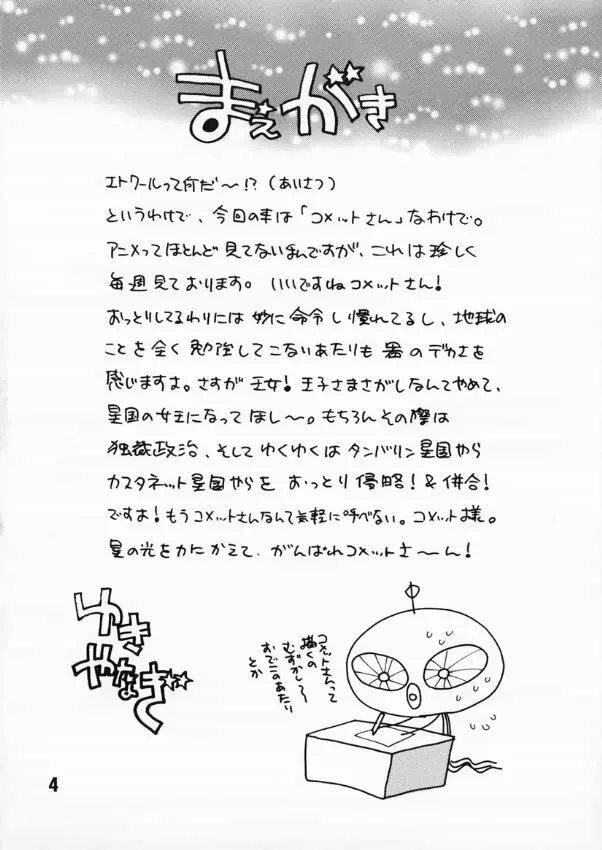 まえがき
エトワールって何だ〜!?(あいさつ)
というわけで、今回の本は「コメットさん」なわけで。
アニメってほとんど見てないまんですが、これは珍しく
毎週見ております。いいですねコメットさん!
おっとりしてるわりには妙に命令し慣れてるし、地球の
ことを全く勉強してこないあたりも器のデカさを
感じますよ。さすが王女!王子さまさがしなんてやめて、
星国の女王になってほし〜。もちろんその際は
独裁政治、そしてゆくゆくはタンバリン星国やら
カスタネット星国やらをおっとり侵略!&併合!
ですよ!もうコメットさんなんて気軽に呼べない。コメット様。
星の光を力にかえて、がんばれコメットさ〜ん!
ゆき
やなぎ
コメットさんって
描くの
むずかし〜
おでこのあたり
とか
4